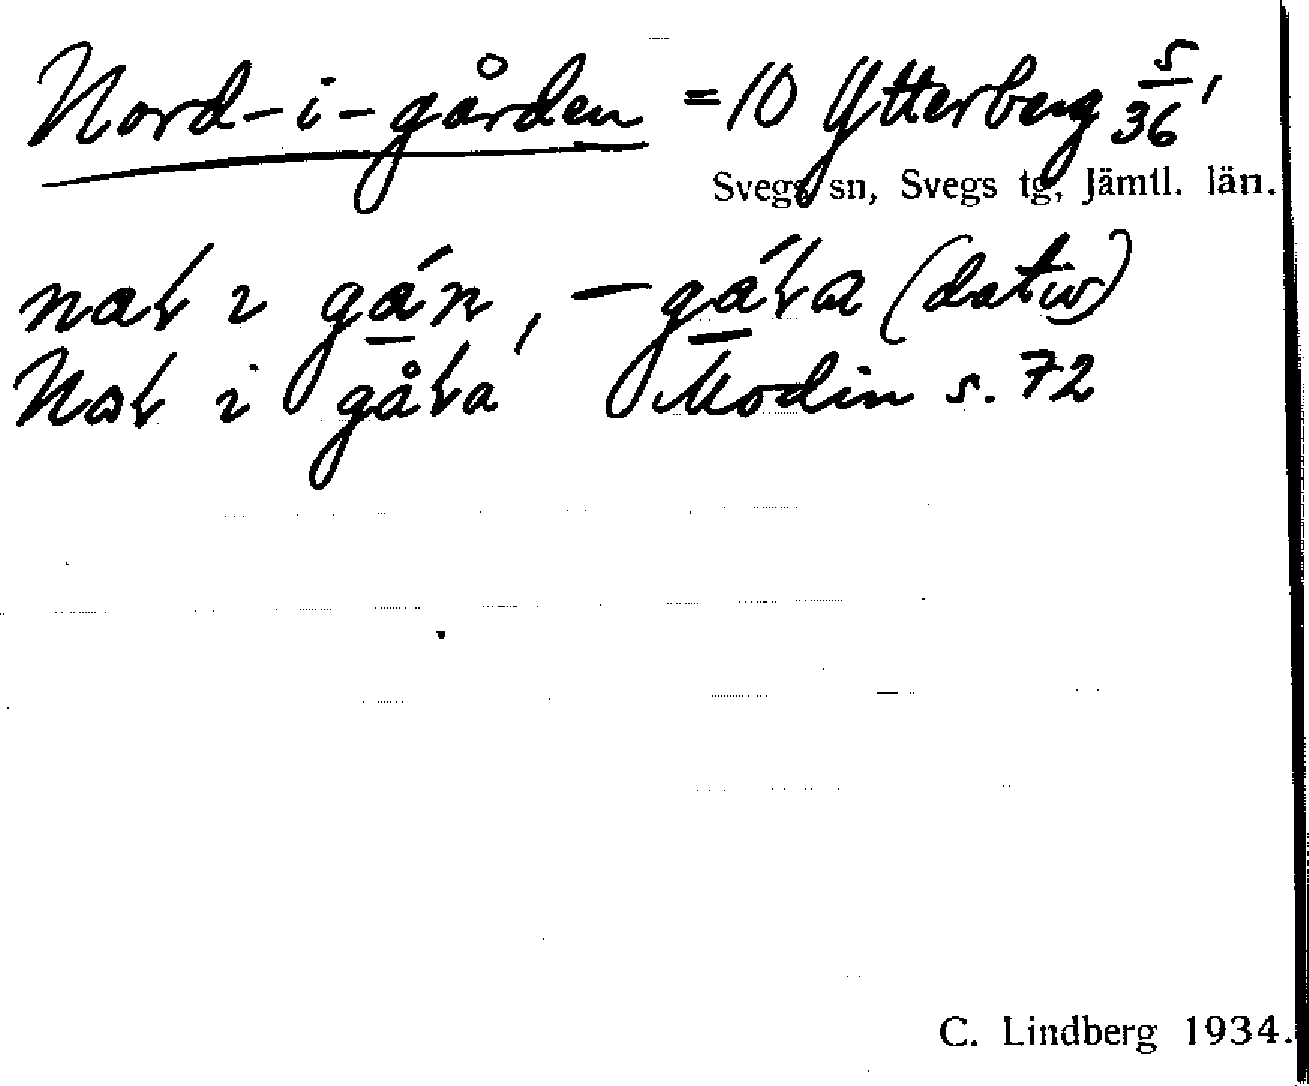 Nord-i-gården = 10 Ytterberg 5/36,
Svegs sn, Svegs tg, Jämtl. län.
naɽ ɪ gá̱n, – gá̱ɽa (dativ)
Naɽ i gåɽa Modin s. 72
C. Lindberg 1934.